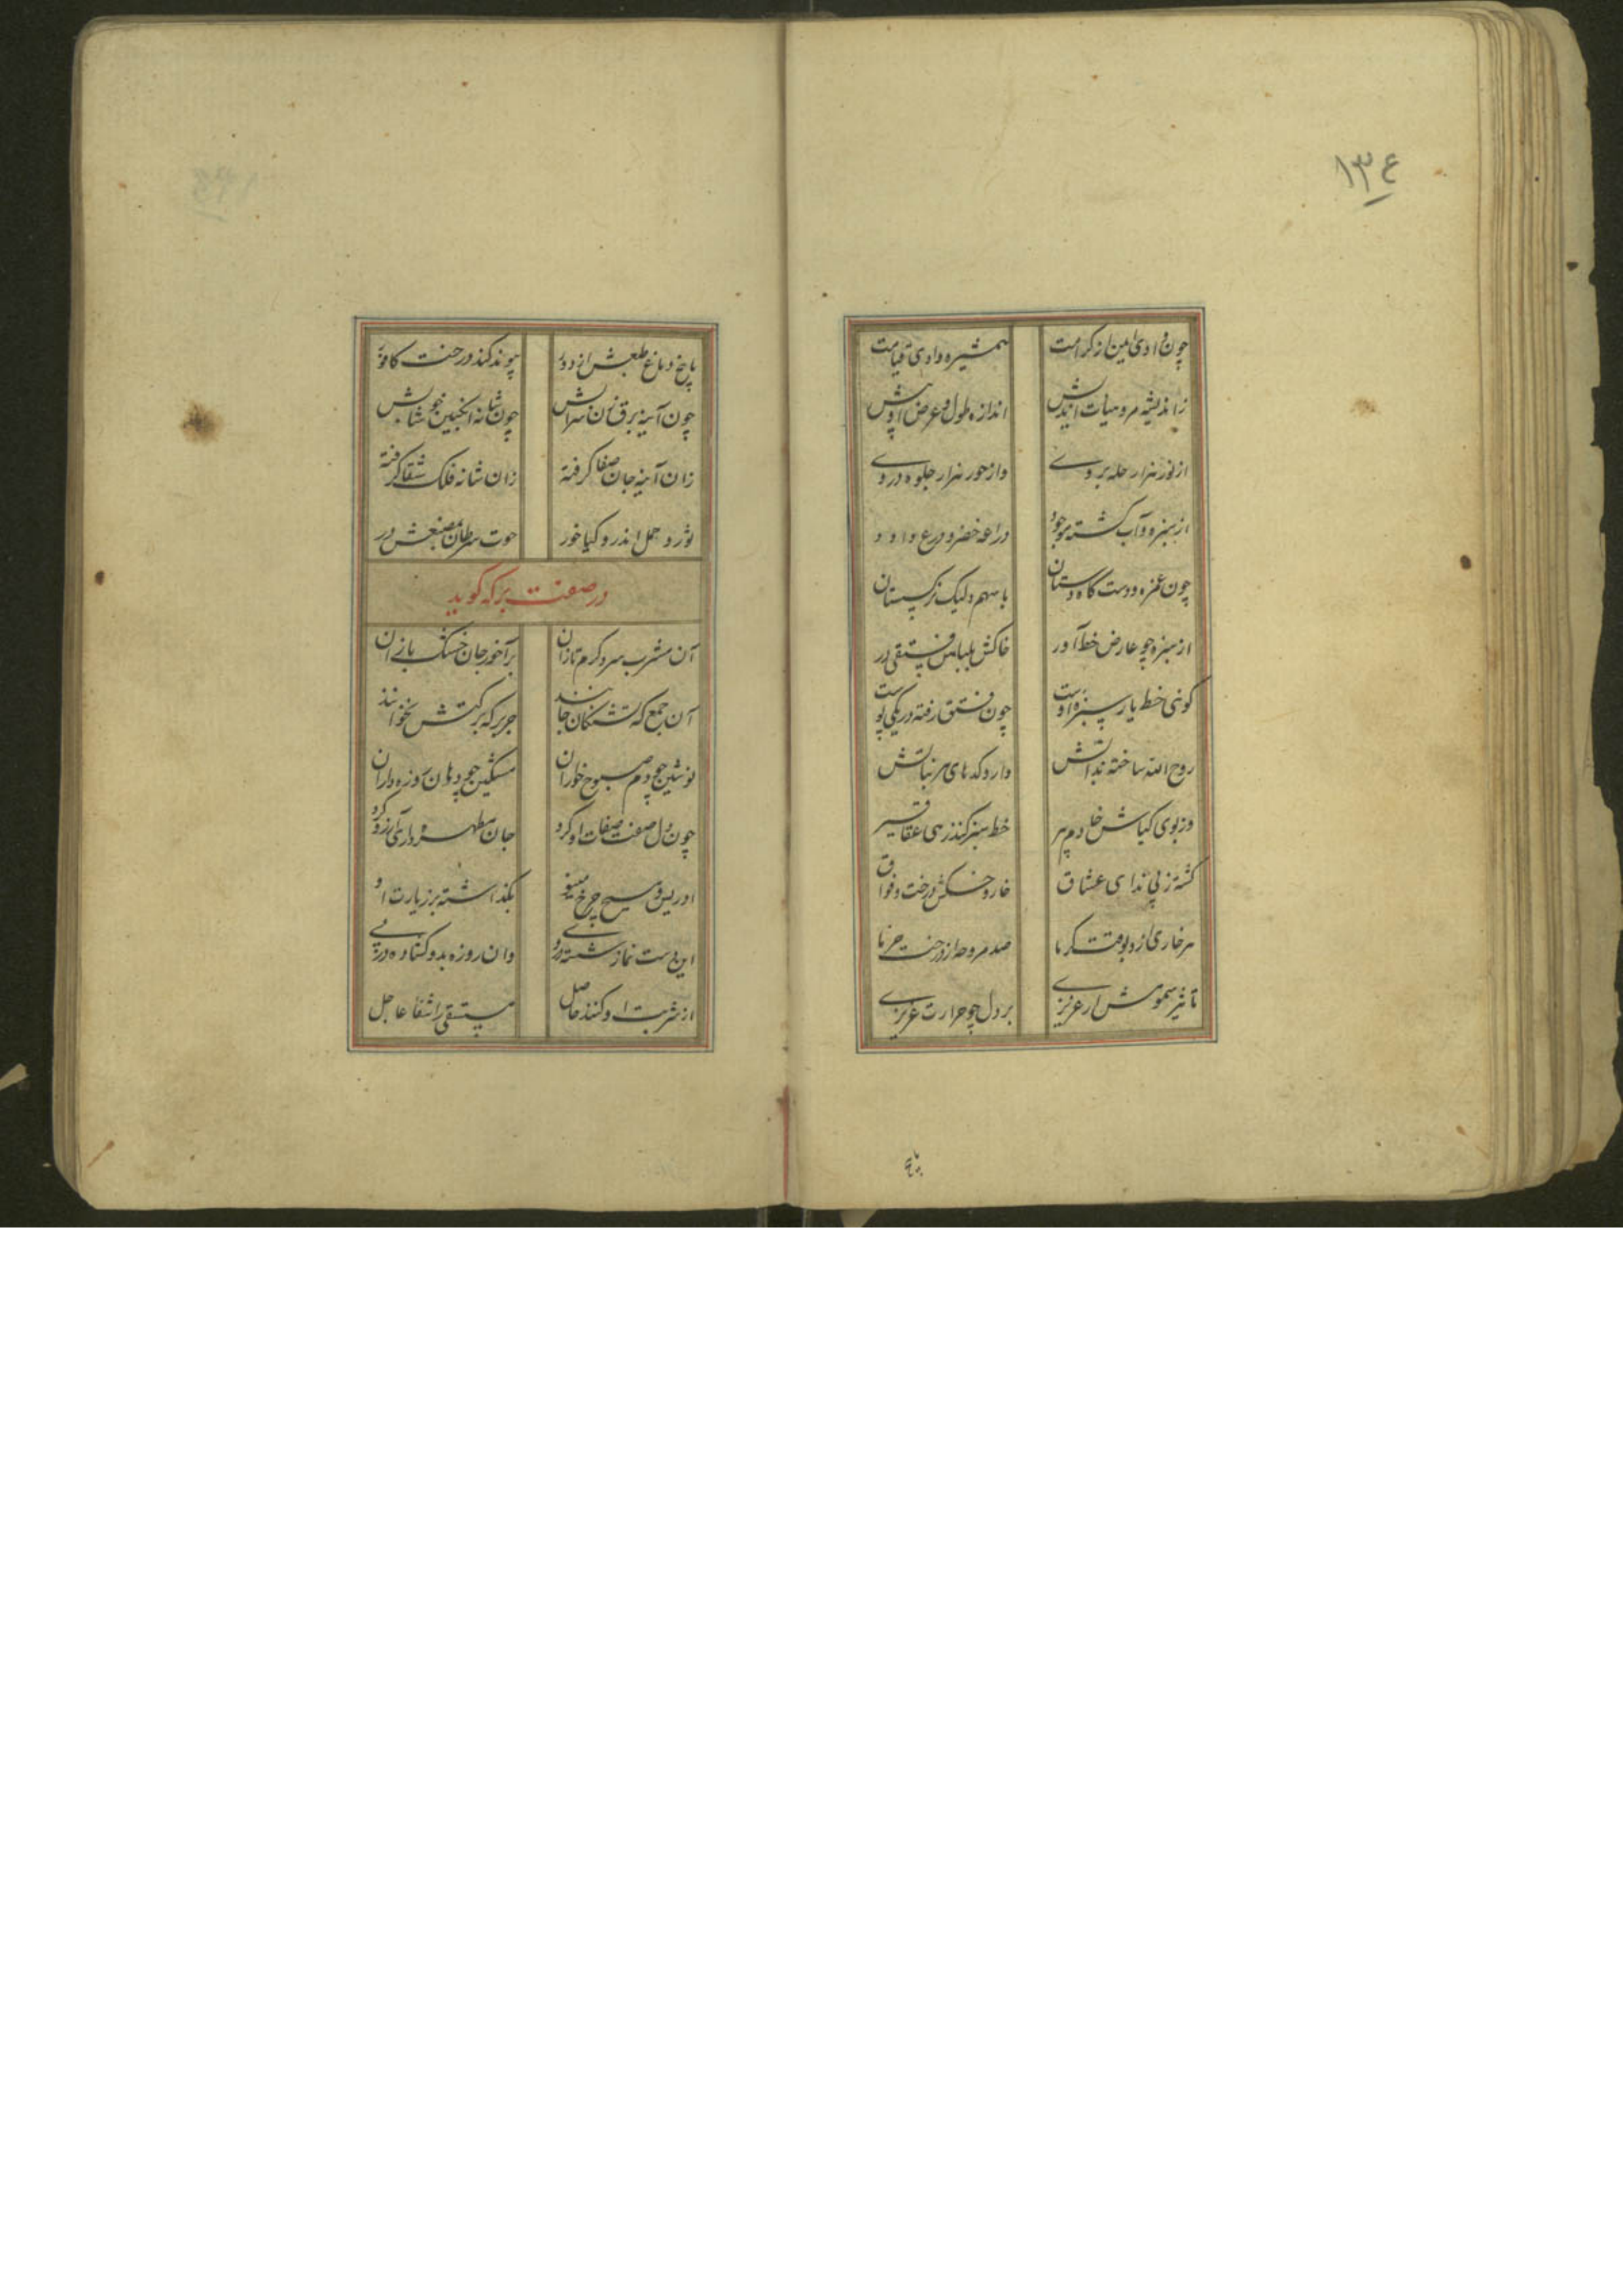 ۱۳۴
چون وادی ایمن از کرامت همشیره وادی قیامت
ز اندیشه مرو میات اندیش اندازه طول و عرض او بیش
از نور هزار حله بر وی واز حور هزار جلوه در وی
از سبزه و آب کشته موجود دراعه خضر و درع داود
چون غمزه دوست گاه دستان با سهم ولیک نرکستان
از سبزه چو عارض خط آور خاکش بلباس فستقی در
گوئی خط یار سبزه اوست چون فستق رفته در یکی پوست
روح الله ساخته بذاتش داروکدهای هر نباتش
وز بوی کیاش خادم پیر خط سبز کند زهی عقاقیر
کشته ز پی ندای عشاق خار و خسکش درخت وقواق
هر خاری ازو بوقت گرما صد مروحه از درخت خرما
تاثیر سمومش ار عزیزی بر دل چو حرارت غریزی
با یخ دماغ طبعش از دور پیوند کند درخت کافور
چون آینه برق سان سرابش چون شانه انکبین خوشابش
زان آینه جان صفا گرفته زان شانه فلک شفا گرفته
ثور و حمل اندرو کیا خور حوت سرطان مصنعش در
در صفت برکه گوید
آن مشرب سرد گرم تازان بر آخور جان خشک بازان
آن جمع که تشنگان جانند جز برکه برکتش نخوانند
نوشین چو دم صبوح خواران مسکین چو دهان روزه داران
چون دل صفت صفات او کرد جان مطهره داری آرزو کرد
ادریس و مسیح چرخ مینو بگذاشته بر زیارت او
این دست نماز شسته در وی وان روزه بدو گشاده در پی
از شربت او کنند حاصل مستسقی را شفا عاجل